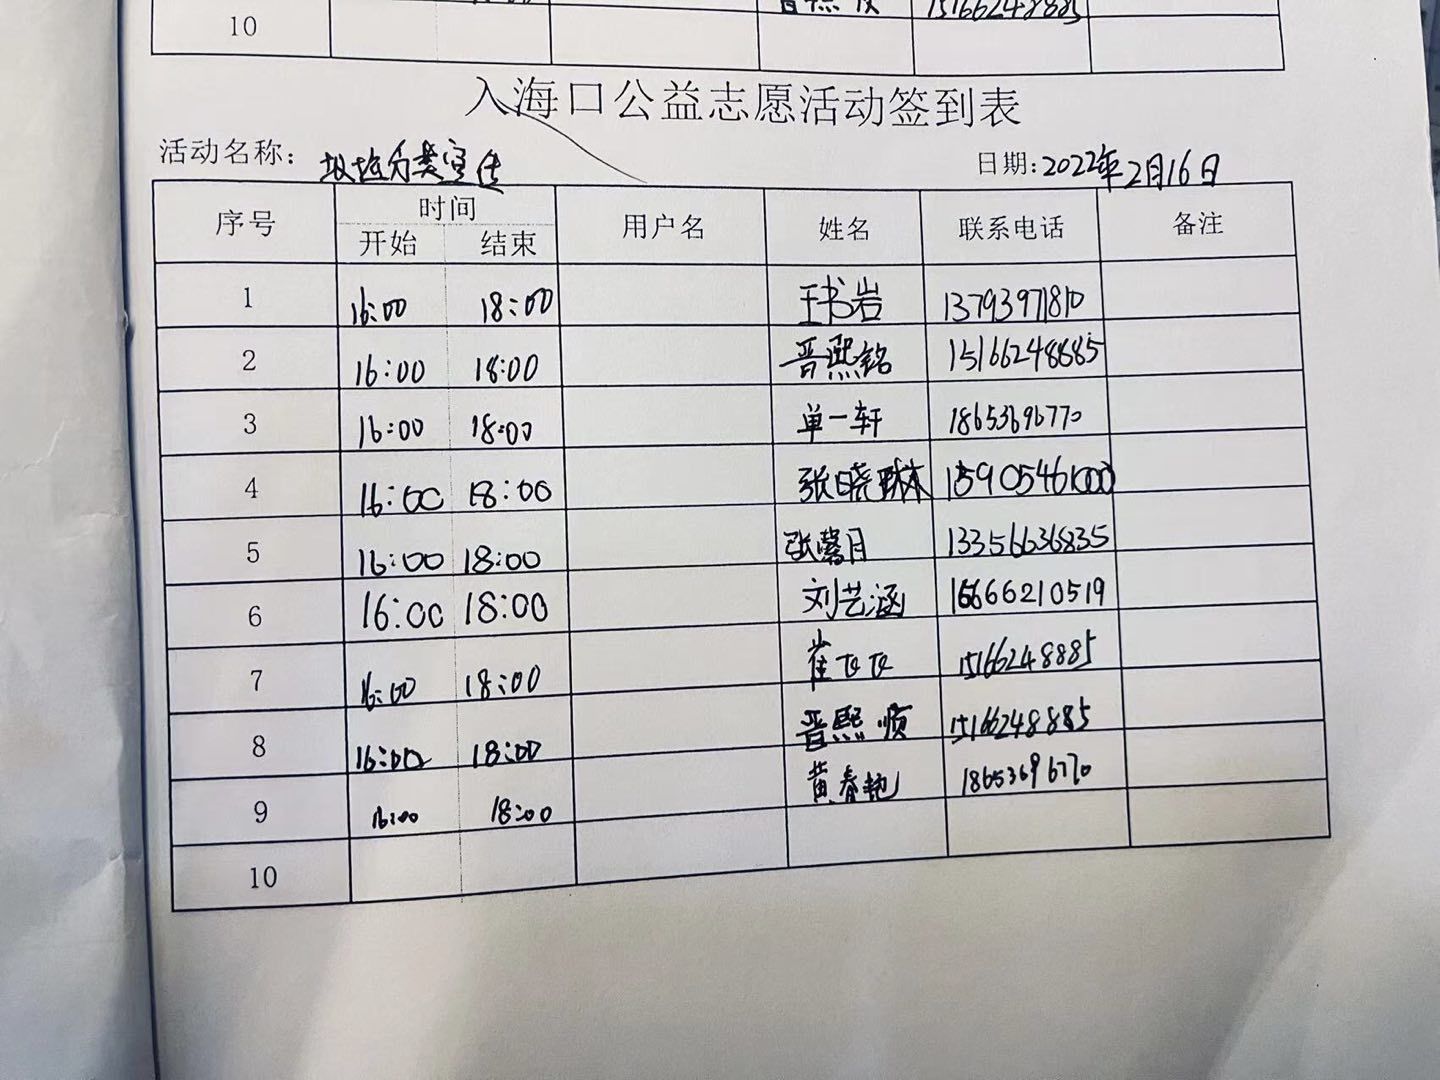 10 15166248885
入海口公益志愿活动签到表
活动名称: 垃圾分类宣传 日期:2022年2月16日
序号 时间 用户名 姓名 联系电话 备注
开始 结束
1 16:00 18:00 王书岩 13793971810
2 16:00 18:00 晋熙铭 15166248885
3 16:00 18:00 单一轩 18653696770
4 16:00 18:00 张晓琳 15905461000
5 16:00 18:00 张馨月 13356636835
6 16:00 18:00 刘艺涵 16666210519
7 16:00 18:00 崔 15166248885
8 16:00 18:00 晋熙顺 15166248885
9 16:00 18:00 黄春艳 18653696770
10